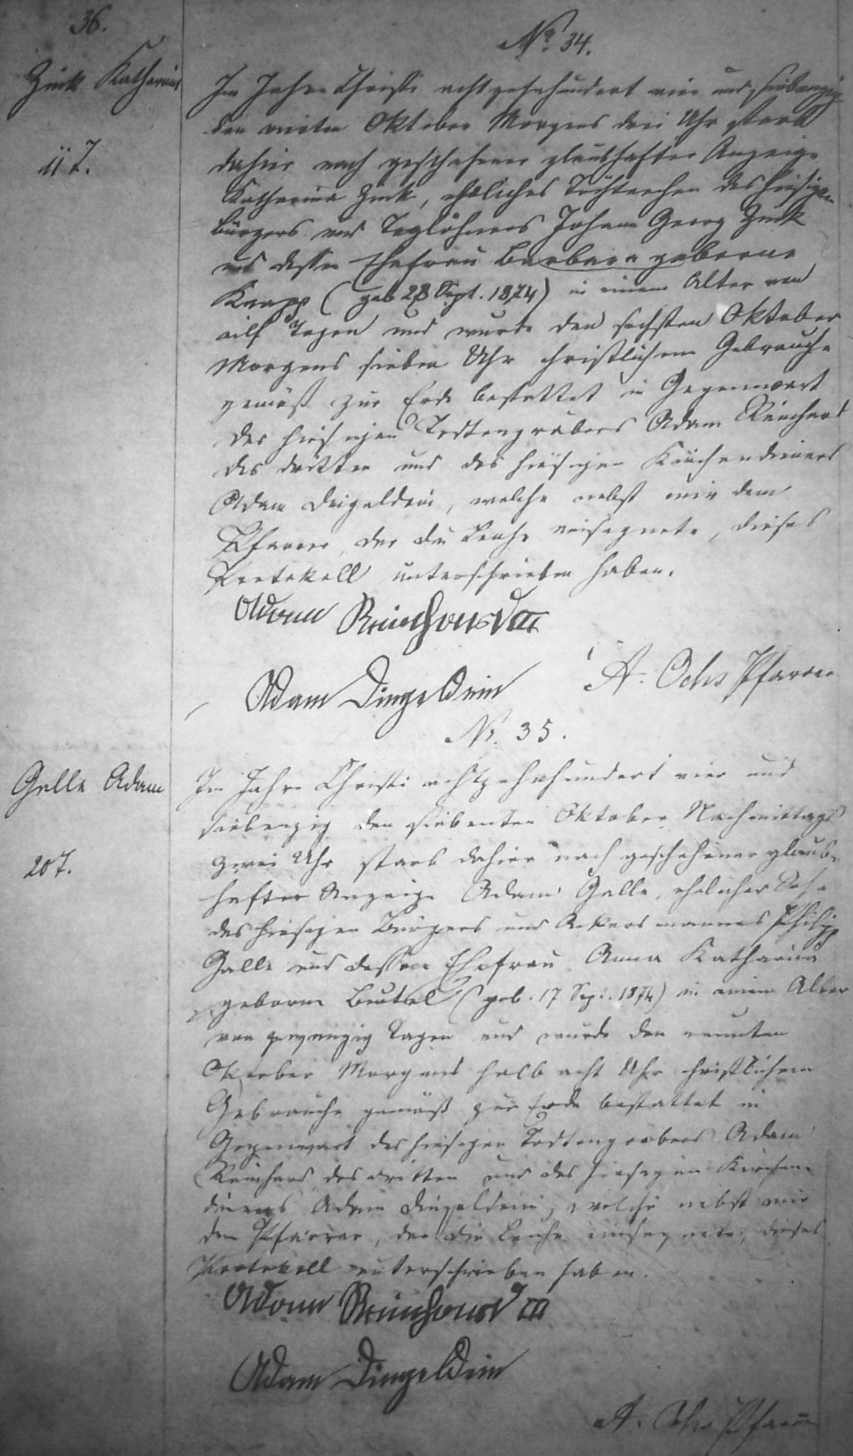 36.
No. 34.
Zink Katharina
11 T.
Im Jahre Christi achtzehnhundert vier und siebenzig
den vierten Oktober Morgens drei Uhr starb
dahier nach geschehener glaubhafter Anzeige
Katharina Zink, eheliches Töchterchen des hiesigen
Bürgers und Taglöhners Johann Georg Zink
und dessen Ehefrau Barbara geborene
Knapp (geb 23 Sept. 1874) in einem Alter von
eilf Tagen und wurde den sechsten Oktober
Morgens sieben Uhr christlichem Gebrauche
gemäß zur Erde bestattet in Gegenwart
des hiesigen Todtengräbers Adam Reinhard
des dritten und des hiesigen Kirchendieners
Adam Dingeldein, welche nebst mir dem
Pfarrer, der die Leiche einsegnete, dieses
Protokoll unterschrieben haben.
Adam Reinhard III
Adam Dingeldein
A. Ochs Pfarrer
Nr. 35.
Galle Adam
20 T.
Im Jahre Christi achtzehnhundert vier und
siebenzig den siebenten Oktober Nachmittags
zwei Uhr starb dahier nach geschehener glaub-
hafter Anzeige Adam Galle, ehelicher Sohn
des hiesigen Bürgers und Ackersmannes Philipp
Galle und dessen Ehefrau Anna Katharina
geborne (geb. 17 Sept. 1874) in einem Alter
von zwanzig Tagen und wurde den neunten
Oktober Morgens halb acht Uhr christlichem
Gebrauche gemäß zur Erde bestattet in
Gegenwart des hiesigen Todtengräbers Adam
Reinhard des dritten und des hiesigen Kirchen-
dieners Adam Dingeldein, welche nebst mir
dem Pfarrer, der die Leiche einsegnete, dieses
Protokoll unterschrieben haben.
Adam Reinhard III
Adam Dingeldein
A. Ochs Pfarrer